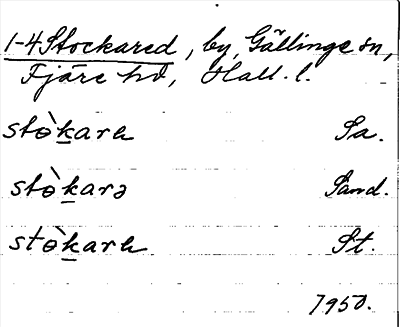 1-4 Stockared, by, Gällinge sn,
Fjäre hd, Hall. l.
stò̱kara Sa.
stò̱karə Sand.
stò̱kara St.
1950.